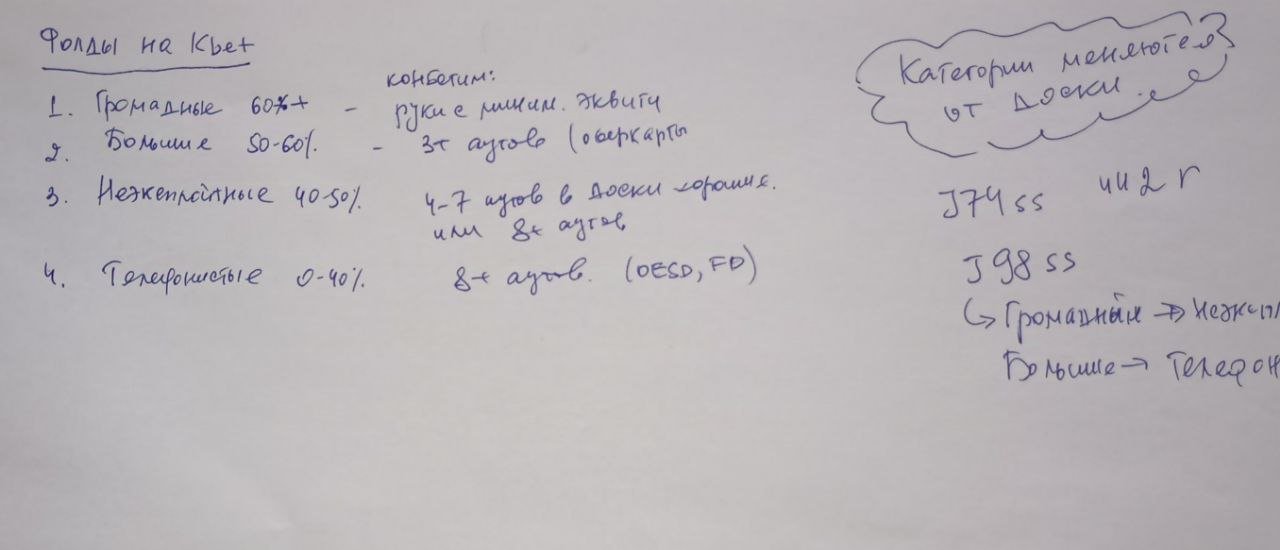 Фолды на Кбет
конбетим:
1. Громадные 60%+ - руки с миним. эквити
2. Большие 50-60% - 3+ аутов (оверкарты
3. Неэкспл 40-50% 4-7 аутов в доски хорошие.
или 8+ аутов
4. Телефонистые 0-40% 8+ аутов. (OESD, FD)
Категории меняются
от доски.
J74ss 442r
J98ss
↳ Громадный → Неэксп
Большие → Телефон